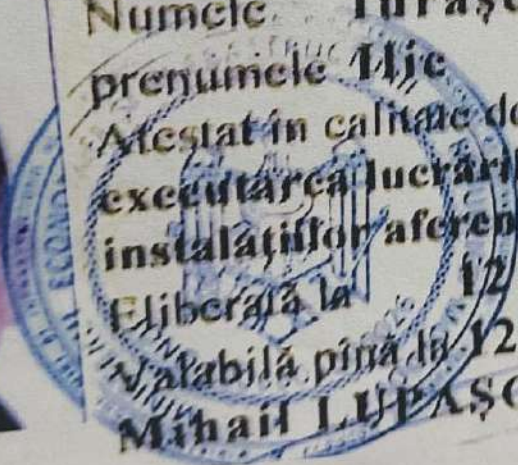 Numele
prenumele Ilie
Atestat în calitate de
executarea lucrăril
instalațiilor aferen
Eliberată la 12
Valabilă pînă la 12
Mihail LUPAȘC
ECONO